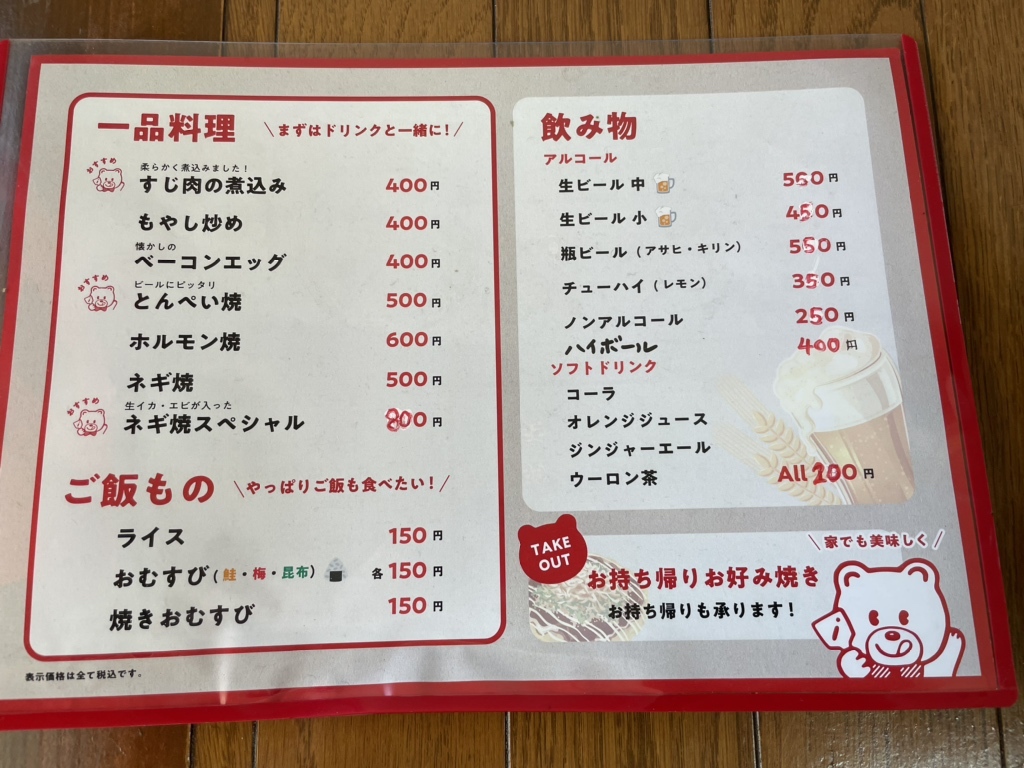 一品料理
まずはドリンクと一緒に!
おすすめ
柔らかく煮込みました!
すじ肉の煮込み 400円
もやし炒め 400円
懐かしの
ベーコンエッグ 400円
おすすめ
ビールにピッタリ
とんぺい焼 500円
ホルモン焼 600円
ネギ焼 500円
おすすめ
生イカ・エビが入った
ネギ焼スペシャル 800円
ご飯もの
やっぱりご飯も食べたい!
ライス 150円
おむすび(鮭・梅・昆布) 各150円
焼きおむすび 150円
表示価格は全て税込です。
飲み物
アルコール
生ビール 中 560円
生ビール 小 450円
瓶ビール(アサヒ・キリン) 550円
チューハイ(レモン) 350円
ノンアルコール 250円
ハイボール 400円
ソフトドリンク
コーラ
オレンジジュース
ジンジャーエール
ウーロン茶 All 200円
TAKE OUT
家でも美味しく
お持ち帰りお好み焼き
お持ち帰りも承ります!